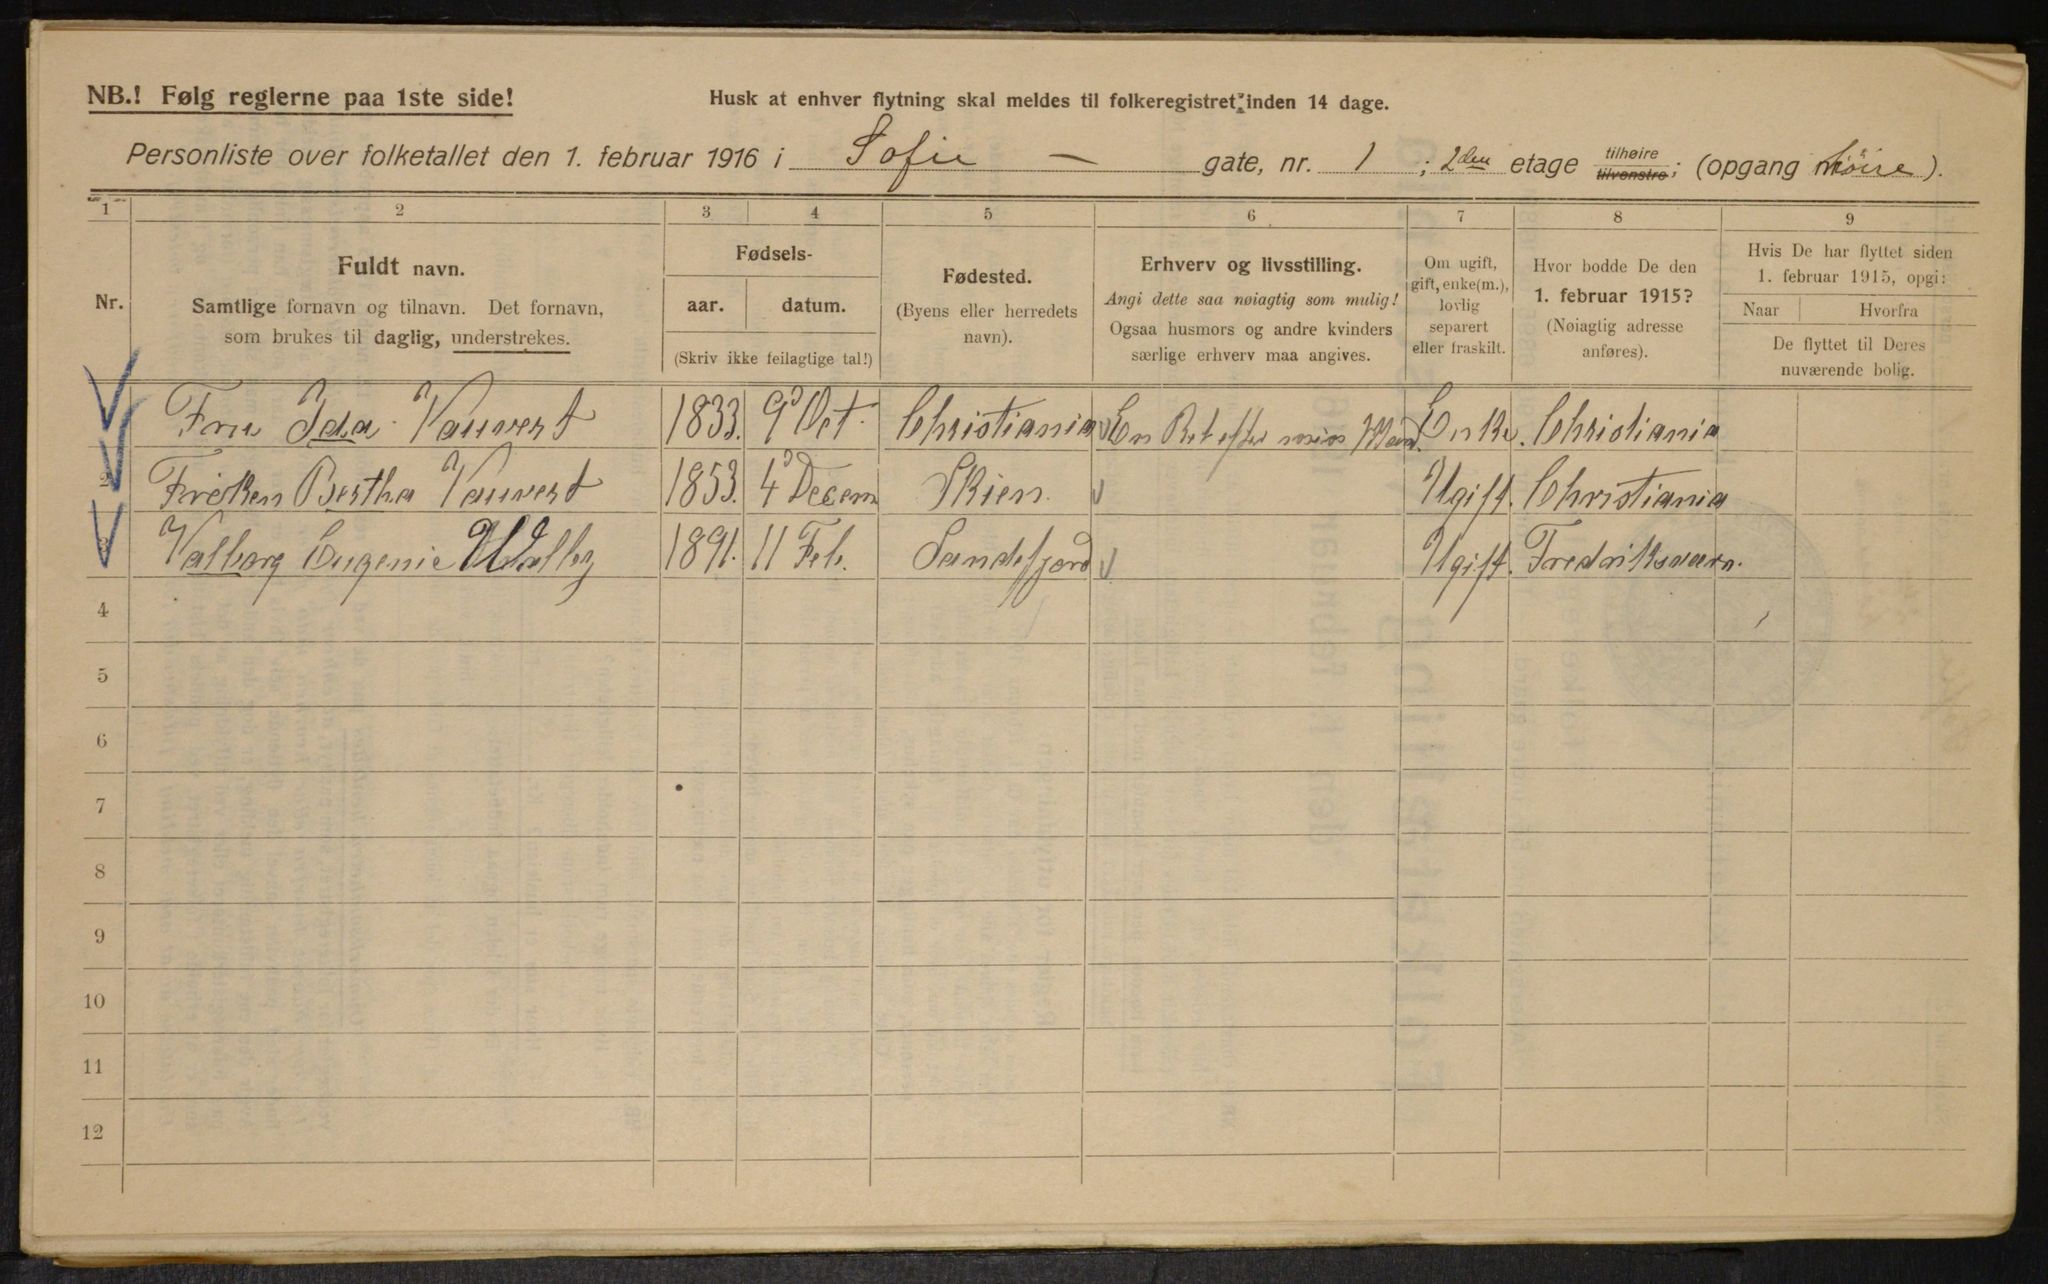 NB.! Følg reglerne paa 1ste side!
Husk at enhver flytning skal meldes til folkeregistret inden 14 dage.
Personliste over folketallet den 1. februar 1916 i Sofie — gate, nr. 1; 2den etage tilhøire tilvenstre; (opgang høire).
1 2 3 4 5 6 7 8 9
Nr.
Fuldt navn.
Samtlige fornavn og tilnavn. Det fornavn,
som brukes til daglig, understrekes.
Fødsels-
aar. datum.
(Skriv ikke feilagtige tal!)
Fødested.
(Byens eller herredets
navn).
Erhverv og livsstilling.
Angi dette saa nøiagtig som mulig!
Ogsaa husmors og andre kvinders
særlige erhverv maa angives.
Om ugift,
gift, enke(m.),
lovlig
separert
eller fraskilt.
Hvor bodde De den
1. februar 1915?
(Nøiagtig adresse
anføres).
Hvis De har flyttet siden
1. februar 1915, opgi:
Naar Hvorfra
De flyttet til Deres
nuværende bolig.
Fru Ida Vauvert 1833. 9 Oct. Christiania Enke. Christiania
2 Frøken Bertha Vauvert 1853. 4 Decem Skien. Ugift. Christiania
3 Valborg Eugenie 1891. 11 Feb. Sandefjord Ugift. Fredriksværn.
4
5
6
7
8
9
10
11
12